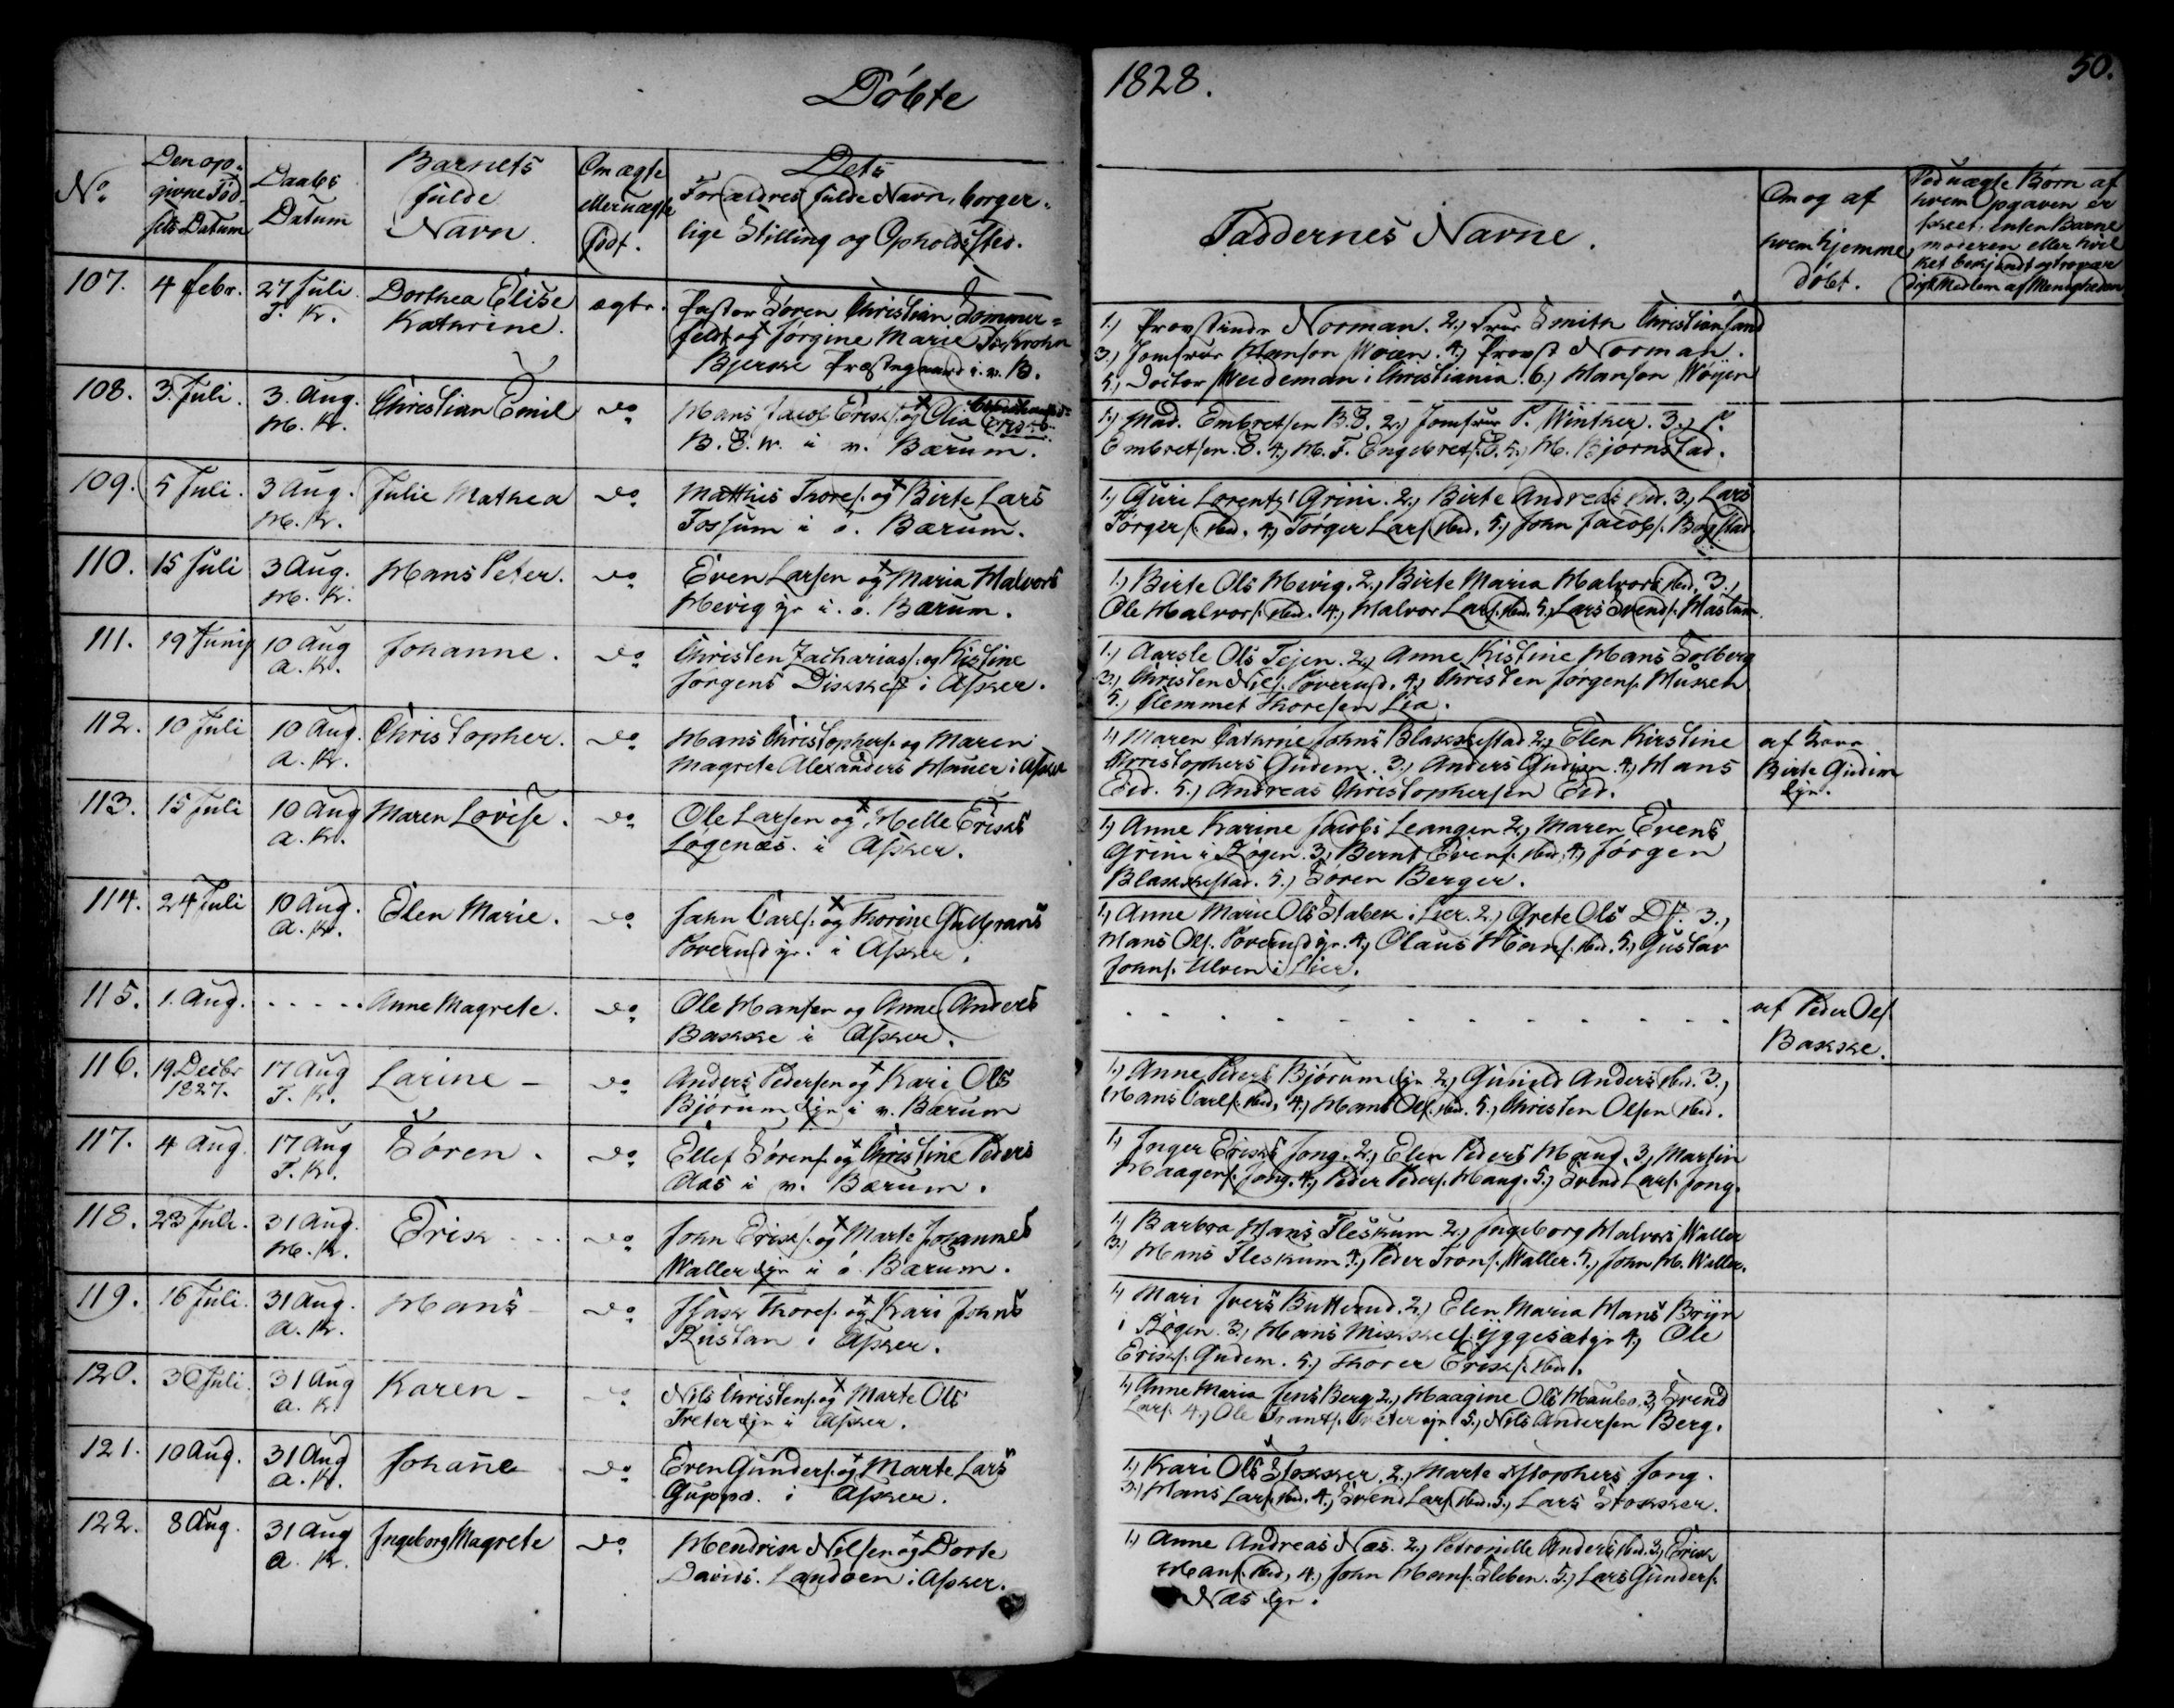 Døbte
1828.
50.
No.
Den opo-
givne Fød-
sels Datum
Daabs
Datum
Barnets
fulde
Navn.
Om ægte
eller uægte
født.
Dets
Forældres fulde Navn, borger-
lige Stilling og Opholdssted.
Faddernes Navne.
Om og af
hvem hjemme
døbt.
Ved uægte Børn af
hvem Opgaven er
skeet, enten Barne
moderen eller hvil
ket bekjendt og trovær
digt Medlem af Menigheden
107. 4 febr. 27 Juli Dorthea Elise ægte. Pastor Søren Christian Sommer-
T. K. Kathrine. feldt og Jørgine Marie Krohn
Bjerke Præstegaard i v. B.
1.) Provstinde Norman. 2.) Frue Smith Christiansand
3.) Jomfrue Hansen Wøien. 4.) Provst Norman.
5.) Doctor Weideman i Christiania. 6.) Hansen Wøyen
108. 3. Juli. 3. Aug. Christian Emil do Hans Jacob Eriks. og Olia
H. K. B. V. i v. Bærum.
1.) Mad. Embretsen B. V. 2.) Jomfrue P. Winther. 3.) P.
Embretsen V. 4.) H. F. Engebrets. V. 5.) H. Bjørnstad.
109. 5 Juli. 3 Aug. Julie Mathea do Matthis Thores. og Birte Lars
H. K. Fossum i ø. Bærum.
1.) Guri Lorentz Grini. 2.) Birte Andreas ibid. 3.) Lars
Tørgers. ibid. 4.) Tørger Lars. ibid. 5.) John Jacobs. Bogstad.
110. 15 Juli 3 Aug. Hans Peter. do Even Larsen og Maria Halvors
H. K. Hevig ejr i ø. Bærum.
1.) Birte Ols Hevig. 2.) Birte Maria Halvors ibid. 3.)
Ole Halvors. ibid. 4.) Halvor Lars. ibid. 5.) Lars Svends. Haslum.
111. 19 Junij 10 Aug Johanne. do Christen Zacharias. og Kistine
A. K. Jørgens Dikke i Asker.
1.) Aarsle Ols Tejen. 2.) Anne Kistine Hans Solberg
3.) Christen Niels. Poverud. 4.) Christen Jørgens. Husken
5.) Clemmet Thoresen Lia.
112. 10 Juli 10 Aug. Christopher. do Hans Christophers. og Maren
A. K. Magrete Alexanders Hauer i Asker
1.) Maren Cathrine Johns Blakkestad 2.) Elen Kirstine
Christophers Gudem. 3.) Anders Gudem. 4.) Hans
Eid. 5.) Andreas Christophersen Eid.
af Kone
Birte Gudem
Ejr.
113. 15 Juli 10 Aug Maren Lovise. do Ole Larsen og Helle Eriks
A. K. Løgenæs. i Asker.
1.) Anne Karine Jacobs Leangen 2.) Maren Evens
Grini i Røgen. 3.) Bernt Evens. ibid. 4.) Jørgen
Blakkestad. 5.) Søren Berger.
114. 24 Juli 10 Aug. Elen Marie. do John Carls. og Thorine Gulbrans
A. K. Poverud ejr. i Asker.
1.) Anne Marie Ols Stabek i Lier. 2.) Grete Ols Do. 3.)
Hans Ols. Poverud ejr. 4.) Olaus Hans. ibid. 5.) Gustav
Johns. Ulven i Lier.
115. 1. Aug. ..... Anne Magrete. do Ole Hansen og Anne Anders
Bakke i Asker.
af Peder Ols.
Bakke.
116. 19 Decbr 17 Aug Larine - do Anders Pedersen og Kari Ols
1827. T. K. Bjørum Ejr i v. Bærum
1.) Anne Peders Bjørum Ejr 2.) Gunild Anders ibid. 3.)
Hans Carls. ibid. 4.) Hans Ols. ibid. 5.) Christen Olsen ibid.
117. 4 Aug. 17 Aug Søren. do Ellef Sørens. og Christine Peders
T. K. Aas i v. Bærum.
1.) Inger Eriks Jong. 2.) Elen Peders Haug. 3.) Martin
Haagens. Jong. 4.) Peder Peders. Haug. 5.) Svend Lars. Jong.
118. 23 Juli. 31 Aug. Erik ... do John Eriks. og Marte Johannes
H. K. Waller Ejr i ø. Bærum.
1.) Barbra Hans Fleskum 2.) Ingeborg Halvors Waller
3.) Hans Fleskum 4.) Peder Trons. Waller. 5.) John H. Waller.
119. 16 Juli. 31 Aug. Hans - do Isak Thores. og Kari Johns
A. K. Rustan i Asker.
1.) Mari Ivers Butterud. 2.) Elen Maria Hans Bryn
i Røgen. 3.) Hans Mikkels. Yggesæt ejr 4.) Ole
Eriks. Gudem. 5.) Thorer Eriks. ibid.
120. 30 Juli. 31 Aug Karen - do Nils Christens. og Marte Ols
A. K. Treter Ejr i Asker.
1.) Anne Maria Jens Berg 2.) Haagine Ols Haubo. 3.) Svend
Lars. 4.) Ole Frants. Treter ejr 5.) Nils Andersen Berg.
121. 10 Aug. 31 Aug Johanne do Even Gunders. og Marte Lars
A. K. Guppo. i Asker.
1.) Kari Ols Stokker. 2.) Marte Xstophers Jong.
3.) Hans Lars. ibid. 4.) Svend Lars. ibid. 5.) Lars Stokker.
122. 8 Aug. 31 Aug Ingeborg Magrete do Hendrik Nilsen og Dorte
A. K. Davids. Landøen i Asker.
1.) Anne Andreas Næs. 2.) Petronille Anders ibid. 3.) Erik
Hans. ibid. 4.) John Hans. Sleben. 5.) Lars Gunders.
Næs Ejr.